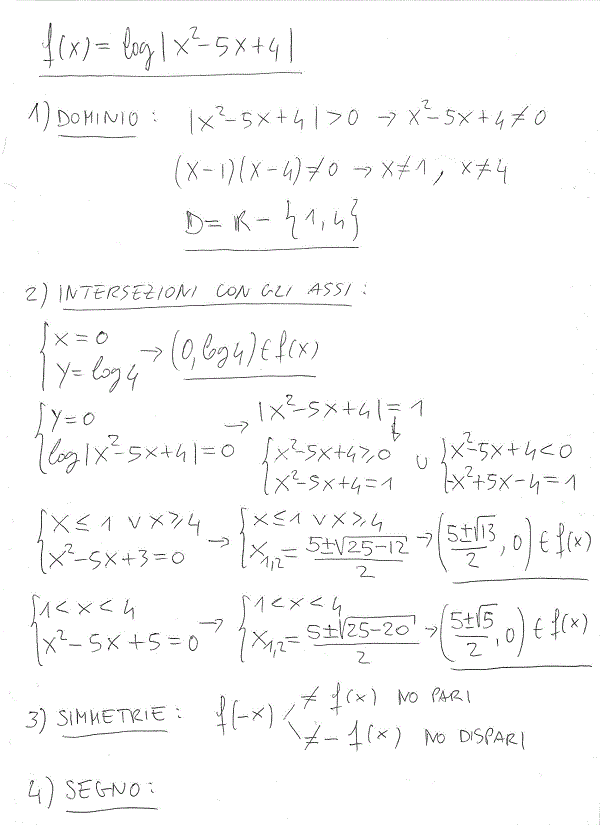 f(x) = log|x²-5x+4|
1) DOMINIO: |x²-5x+4|>0 → x²-5x+4≠0
(x-1)(x-4)≠0 → x≠1, x≠4
D=R-{1,4}
2) INTERSEZIONI CON GLI ASSI:
{x=0
{y=log4 → (0,log4)∈f(x)
{y=0 → |x²-5x+4|=1
{log|x²-5x+4|=0 ↓
{x²-5x+4≥0 ∪ {x²-5x+4<0
{x²-5x+4=1 {-x²+5x-4=1
{x≤1 ∨ x≥4 → {x≤1 ∨ x≥4
{x²-5x+3=0 {x₁,₂=(5±√(25-12))/2 → ((5±√13)/2, 0)∈f(x)
{1<x<4 → {1<x<4
{x²-5x+5=0 {x₁,₂=(5±√(25-20))/2 → ((5±√5)/2, 0)∈f(x)
3) SIMMETRIE: f(-x) ≠ f(x) NO PARI
≠ -f(x) NO DISPARI
4) SEGNO: